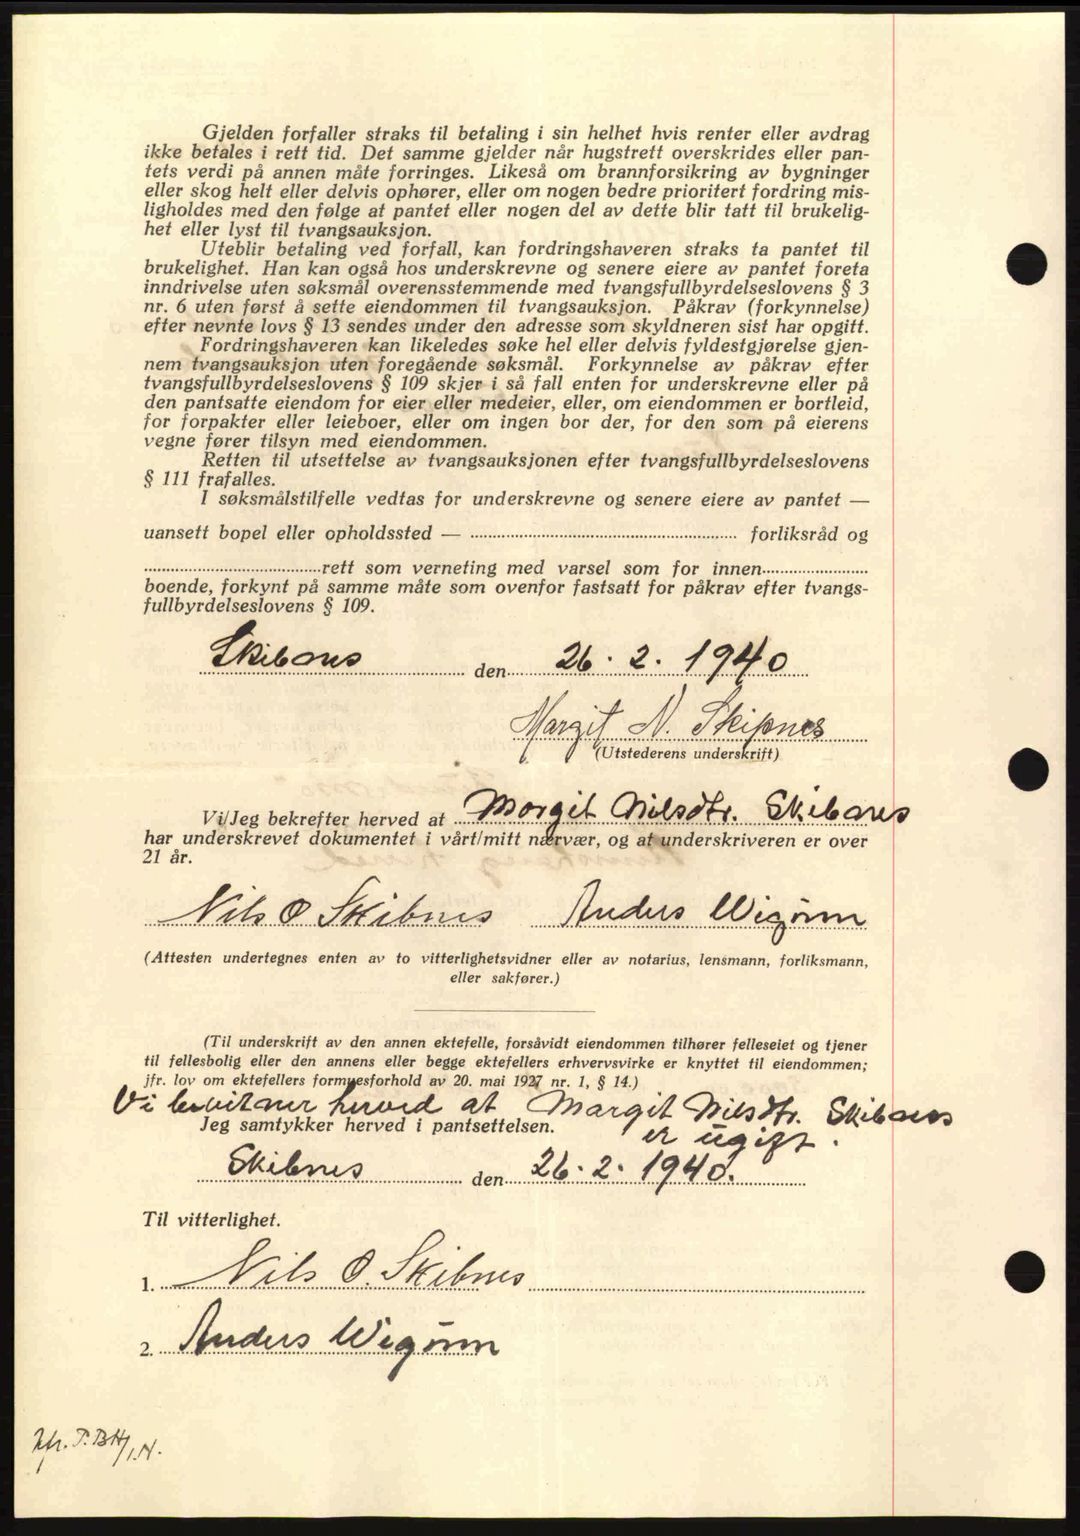 Gjelden forfaller straks til betaling i sin helhet hvis renter eller avdrag
ikke betales i rett tid. Det samme gjelder når hugstrett overskrides eller pan-
tets verdi på annen måte forringes. Likeså om brannforsikring av bygninger
eller skog helt eller delvis ophører, eller om nogen bedre prioritert fordring mis-
ligholdes med den følge at pantet eller nogen del av dette blir tatt til brukelig-
het eller lyst til tvangsauksjon.
Uteblir betaling ved forfall, kan fordringshaveren straks ta pantet til
brukelighet. Han kan også hos underskrevne og senere eiere av pantet foreta
inndrivelse uten søksmål overensstemmende med tvangsfullbyrdelseslovens § 3
nr. 6 uten først å sette eiendommen til tvangsauksjon. Påkrav (forkynnelse)
efter nevnte lovs § 13 sendes under den adresse som skyldneren sist har opgitt.
Fordringshaveren kan likeledes søke hel eller delvis fyldestgjørelse gjen-
nem tvangsauksjon uten foregående søksmål. Forkynnelse av påkrav efter
tvangsfullbyrdelseslovens § 109 skjer i så fall enten for underskrevne eller på
den pantsatte eiendom for eier eller medeier, eller, om eiendommen er bortleid,
for forpakter eller leieboer, eller om ingen bor der, for den som på eierens
vegne fører tilsyn med eiendommen.
Retten til utsettelse av tvangsauksjonen efter tvangsfullbyrdelseslovens
§ 111 frafalles.
I søksmålstilfelle vedtas for underskrevne og senere eiere av pantet —
uansett bopel eller opholdssted — forliksråd og
rett som verneting med varsel som for innen
boende, forkynt på samme måte som ovenfor fastsatt for påkrav efter tvangs-
fullbyrdelseslovens § 109.
Skibnes den 26. 2. 1940
Margit N. Skipnes
(Utstederens underskrift)
Vi/Jeg bekrefter herved at Margit Nilsdtr. Skibnes
har underskrevet dokumentet i vårt/mitt nærvær, og at underskriveren er over
21 år.
Nils O Skibnes Anders Wigønn
(Attesten undertegnes enten av to vitterlighetsvidner eller av notarius, lensmann, forliksmann,
eller sakfører.)
(Til underskrift av den annen ektefelle, forsåvidt eiendommen tilhører felleseiet og tjener
til fellesbolig eller den annens eller begge ektefellers erhvervsvirke er knyttet til eiendommen;
jfr. lov om ektefellers formuesforhold av 20. mai 1927 nr. 1, § 14.)
Vi bevitner herved at Margit Nilsdtr. Skibnes
er ugift.
Jeg samtykker herved i pantsettelsen.
Skibnes den 26. 2. 1940.
Til vitterlighet.
1. Nils O. Skibnes
2. Anders Wigønn